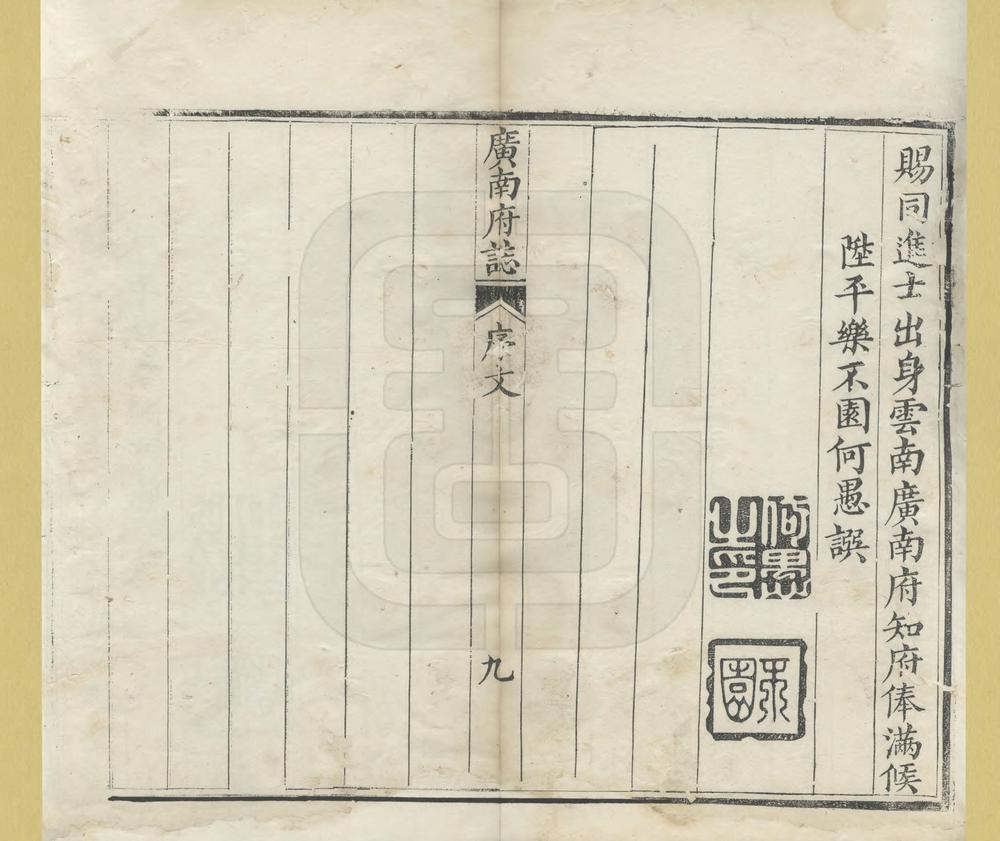 賜同進士出身雲南廣南府知府俸滿候
陞平樂不園何愚譔
何愚之印
廣南府誌
序文
九